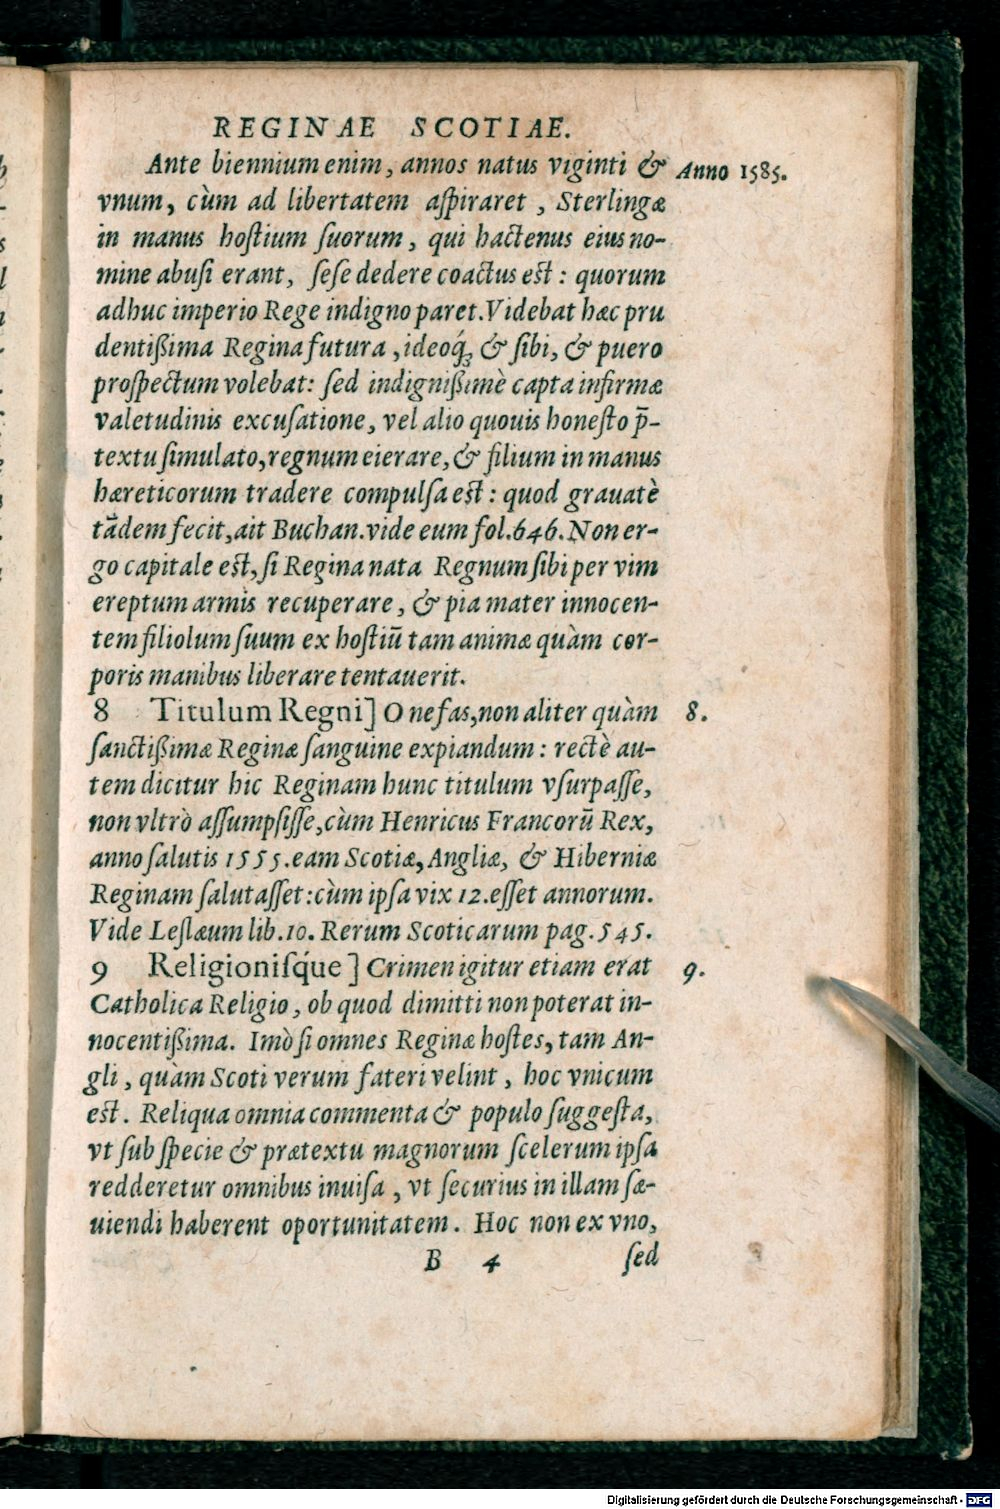 REGINAE SCOTIAE.
Ante biennium enim, annos natus viginti & Anno 1585.
vnum, cùm ad libertatem aſpiraret, Sterlingæ
in manus hoſtium ſuorum, qui hactenus eius no-
mine abuſi erant, ſeſe dedere coactus eſt: quorum
adhuc imperio Rege indigno paret. Videbat hæc pru
dentißima Regina futura, ideoq́ꝫ & ſibi, & puero
proſpectum volebat: ſed indignißimè capta infirmæ
valetudinis excuſatione, vel alio quouis honeſto p̄-
textu ſimulato, regnum eierare, & filium in manus
hæreticorum tradere compulſa eſt: quod grauatè
tādem fecit, ait Buchan. vide eum fol. 646. Non er-
go capitale eſt, ſi Regina nata Regnum ſibi per vim
ereptum armis recuperare, & pia mater innocen-
tem filiolum ſuum ex hoſtiū tam animæ quàm cor-
poris manibus liberare tentauerit.
8 Titulum Regni] O nefas, non aliter quàm 8.
ſanctißimæ Reginæ ſanguine expiandum: rectè au-
tem dicitur hic Reginam hunc titulum vſurpaſſe,
non vltrò aſſumpſiſſe, cùm Henricus Francorū Rex,
anno ſalutis 1555. eam Scotiæ, Angliæ, & Hiberniæ
Reginam ſalutaſſet: cùm ipſa vix 12. eſſet annorum.
Vide Leſlæum lib. 10. Rerum Scoticarum pag. 545.
9 Religioniſq́ue] Crimen igitur etiam erat 9.
Catholica Religio, ob quod dimitti non poterat in-
nocentißima. Imò ſi omnes Reginæ hoſtes, tam An-
gli, quàm Scoti verum fateri velint, hoc vnicum
eſt. Reliqua omnia commenta & populo ſuggeſta,
vt ſub ſpecie & prætextu magnorum ſcelerum ipſa
redderetur omnibus inuiſa, vt ſecurius in illam ſæ-
uiendi haberent oportunitatem. Hoc non ex vno,
B 4 ſed
Digitalisierung gefördert durch die Deutsche Forschungsgemeinschaft - DFG